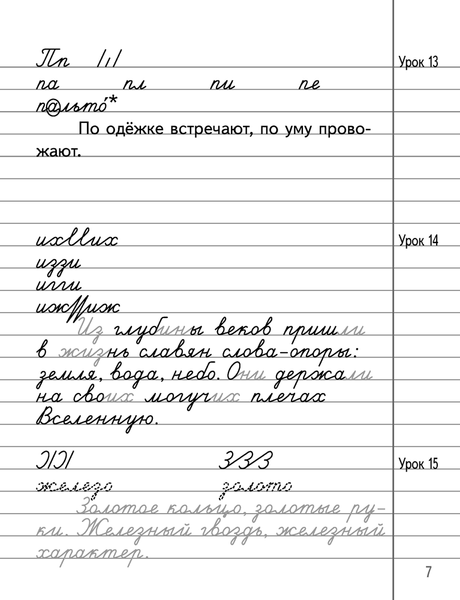 Пп
Урок 13
па пл пи пе
п@льто́*
По одёжке встречают, по уму прово-
жают.
Урок 14
иззи
игги
Из глубины веков пришли
в жизнь славян слова-опоры:
земля, вода, небо. Они держали
на своих могучих плечах
Вселенную.
Урок 15
железо золото
Золотое кольцо, золотые ру-
ки. Железный гвоздь, железный
характер.
7